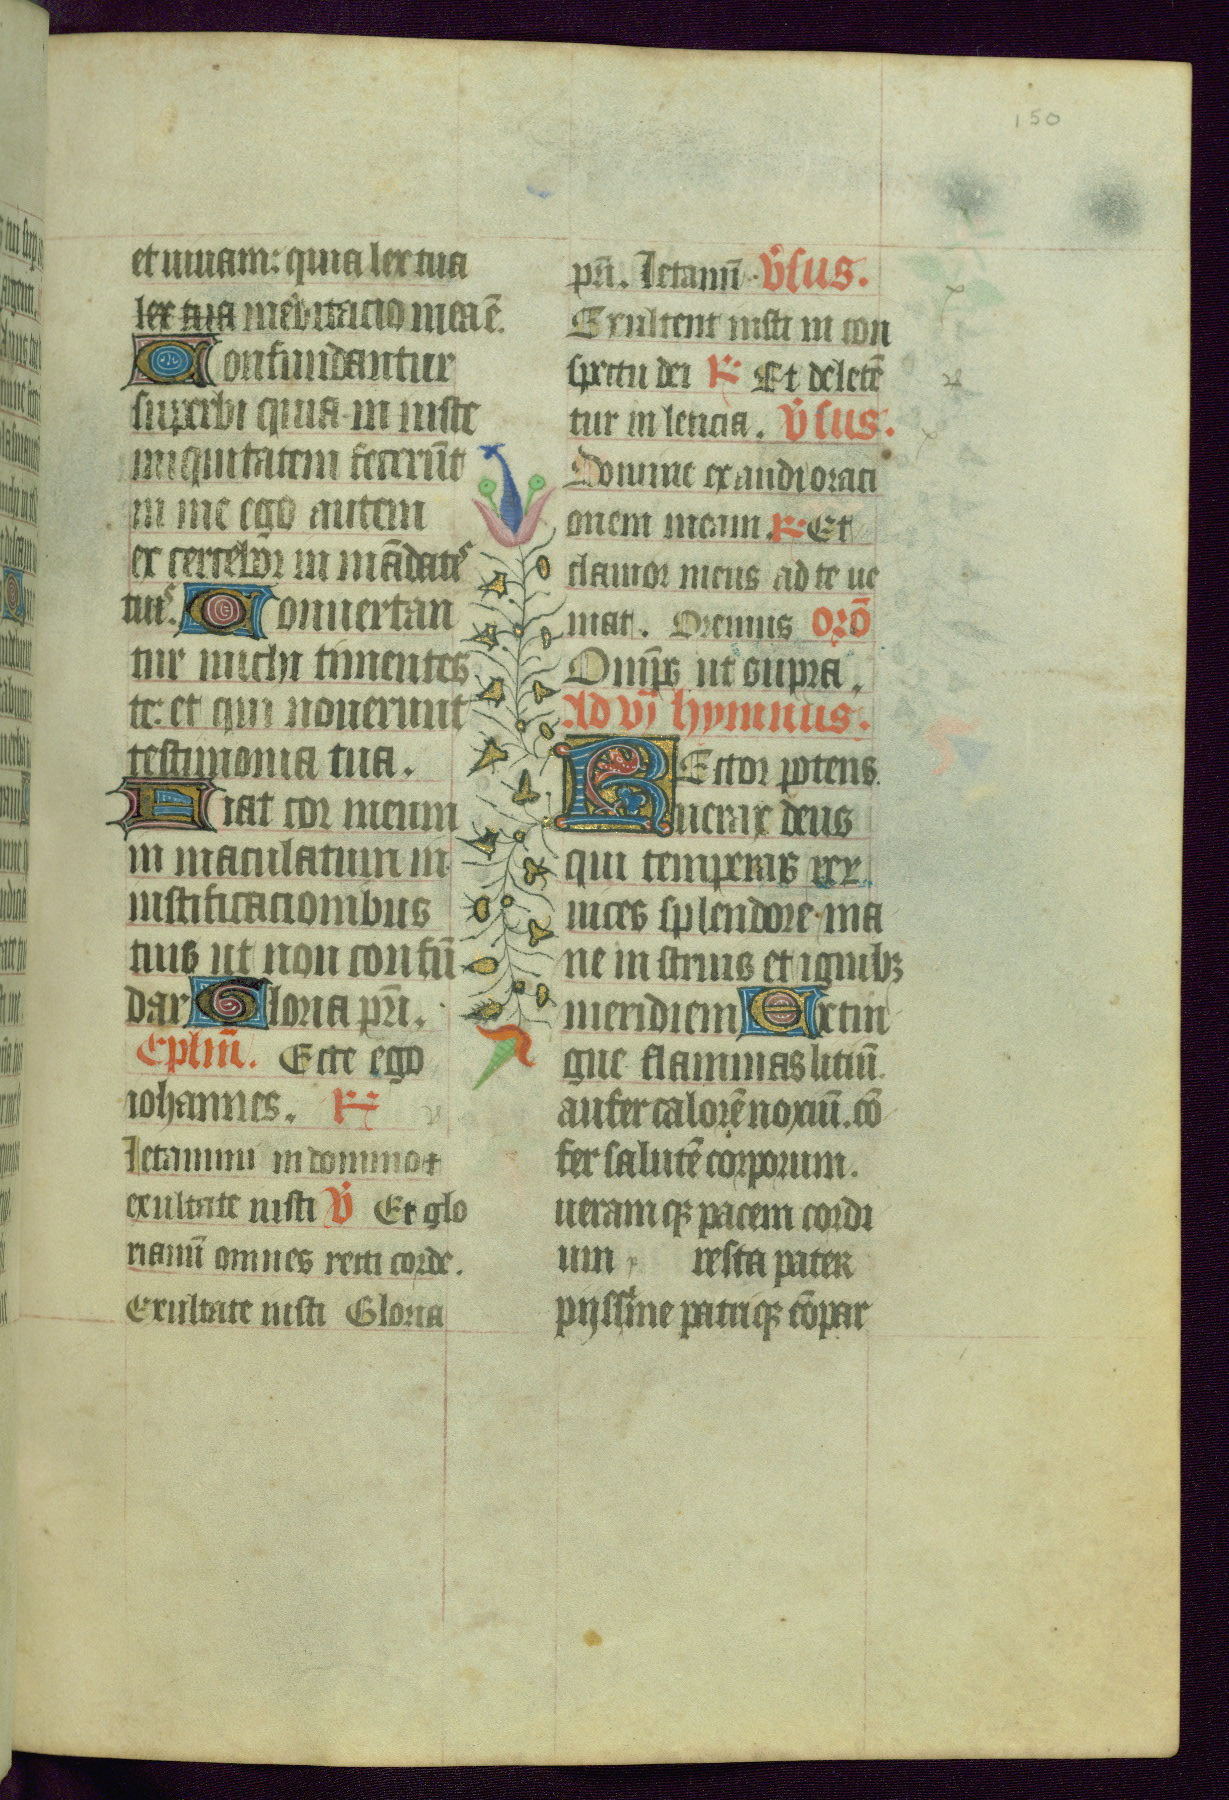 150
et uiuam: quia lex tua
lex tua meditacio mea ē.
Confundantur
superbi quia in iuste
iniquitatem fecerūt
in me ego autem
ex cercebor in mādatis
tuis. Conuertan
tur michi timentes
te: et qui nouerunt
testimonia tua.
Fiat cor meum
in maculatum in
iustificacionibus
tuis ut non confū
dar Gloria pr̄i.
Eplm̄. Ecce ego
iohannes. R
Letamini in domino et
exultate iusti V̄ Et glo
riamī omnes recti corde.
Exultate iusti Gloria
pr̄i. Letamī. V̄sus.
Exultent iusti in con
spectu dei R Et delectē
tur in leticia. V̄sus.
Domine exaudi oraci
onem meam. R Et
clamor meus ad te ue
niat. Oremus orō
Omp̄s ut supra.
Ad vi hymnus.
REctor potens
uerax deus
qui temperas rex
uices splendore ma
ne in struis et ignibꝫ
meridiem Extin
gue flammas litiū.
aufer calorē noxiū. cō
fer salutē corporum.
ueramqꝫ pacem cordi
um resta pater
pijssime patriqꝫ cōpar